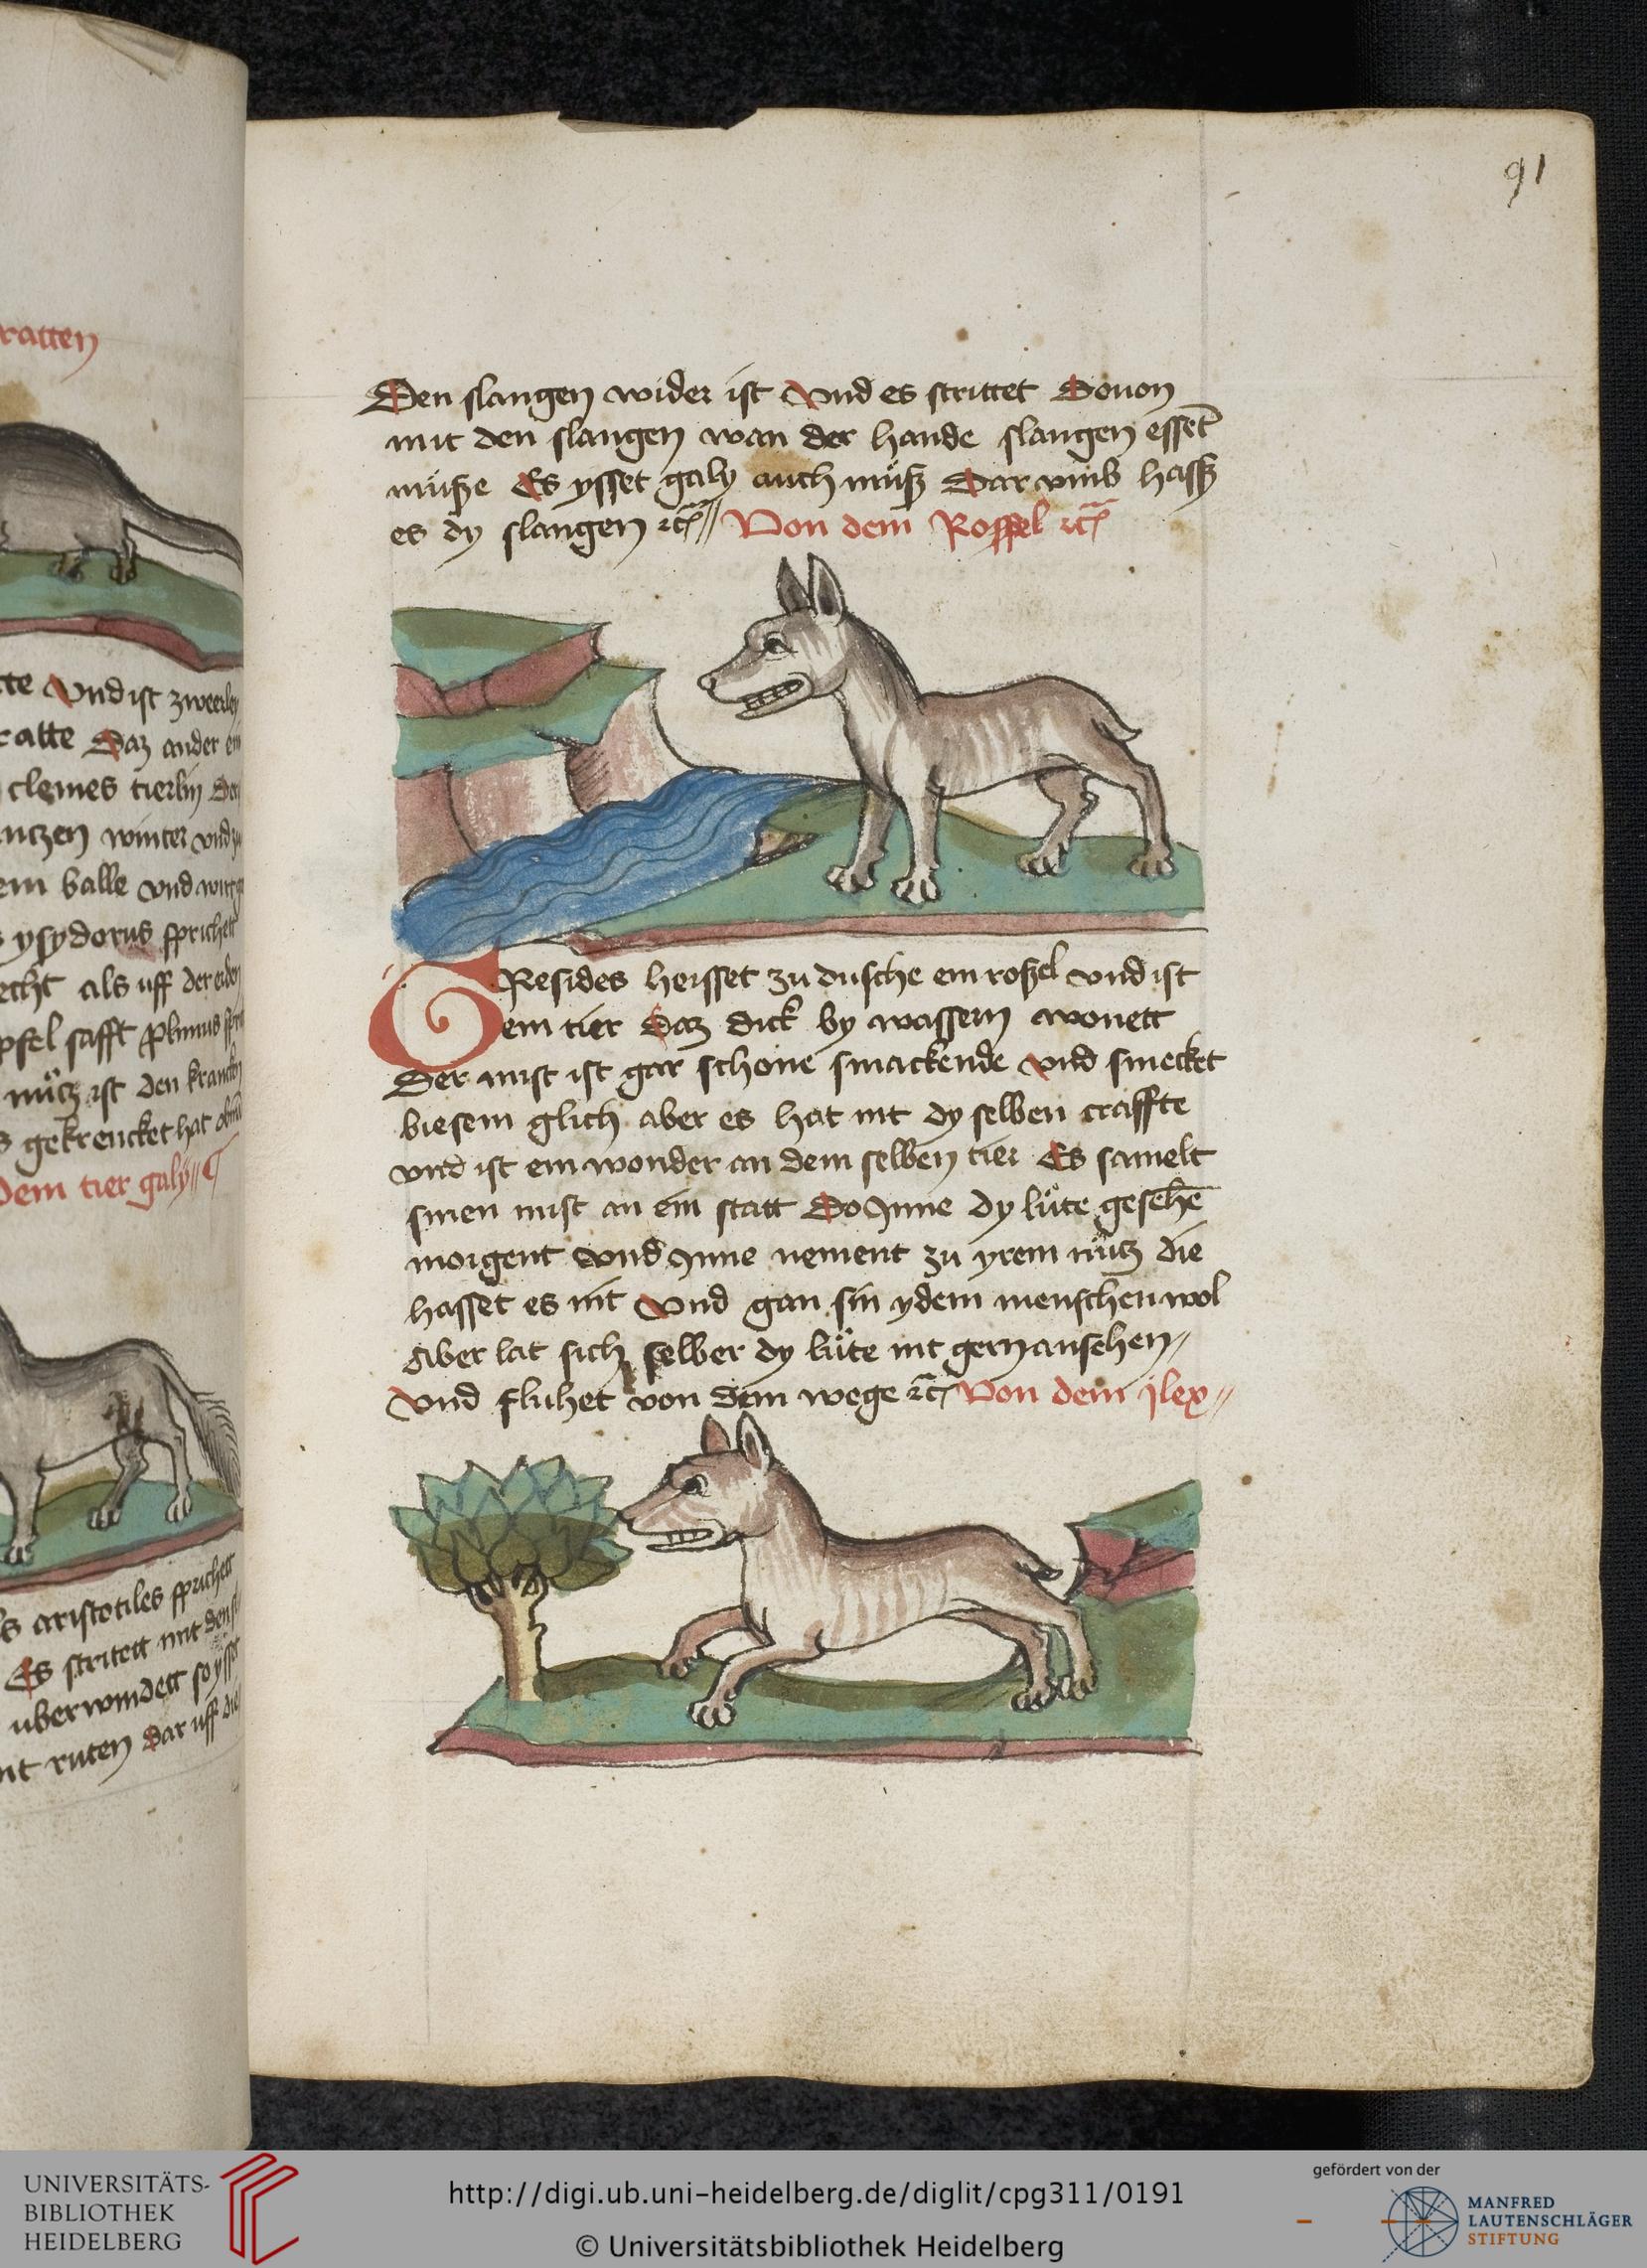 ratten
tte Vnd ist zweerley
ratte Daz ander ein
clemes tierlin
winter vnd
em balle vnd
ysydorus sprichett
echt als uff der erden
pfel safft plinius
nütz ist den krancken
gekrencket hat
Dem tier galy
aristotiles sprichett
Es stritett mit den
uberwindett so ysset
mit ruten Dar uff die
91
Den slangen wider ist Vnd es strittet Douon
mit den slangen wan der hande slangen essēt
müße Es ysset galy auch müß Dar vmb hasß
es dy slangen ꝛc̃ Von dem Roppel ꝛc̃
GResides heisset zu dusche ein roßel vnd ist
ein tier Daz dick by wassern wonett
Der mist ist gar schone smackende vnd smecket
biesem glich aber es hat nit dy selben craffte
vnd ist ein wonder an dem selben tier Es samelt
sinen mist an ein statt Do Inne dy lüte gesehē
morgent vnd Inne nement zu yrem nütz die
hasset es nit Vnd gan sin ydem menschen wol
Aber lat sich selber dy lüte nit gern ansehen
Vnd fluhet von dem wege ꝛc̃ Von dem jlex
UNIVERSITÄTS-
BIBLIOTHEK
HEIDELBERG
http://digi.ub.uni-heidelberg.de/diglit/cpg311/0191
© Universitätsbibliothek Heidelberg
gefördert von der
MANFRED
LAUTENSCHLÄGER
STIFTUNG